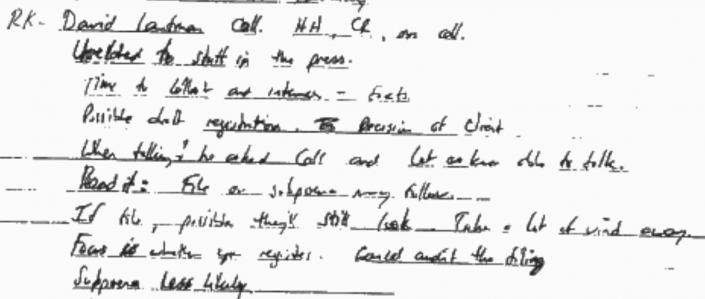 RK- David Laufman Call. HH, CR, on call.
Unrelated to stuff in the press.
Time to collect and interview - facts
Possible draft registration. Decision of Client
When talking, he asked Call and let us know able to talk.
File or subpoena may follow
If file, possible they'll still look. Take a lot of wind away
Focus is whether register. Could audit the filing
Subpoena less likely